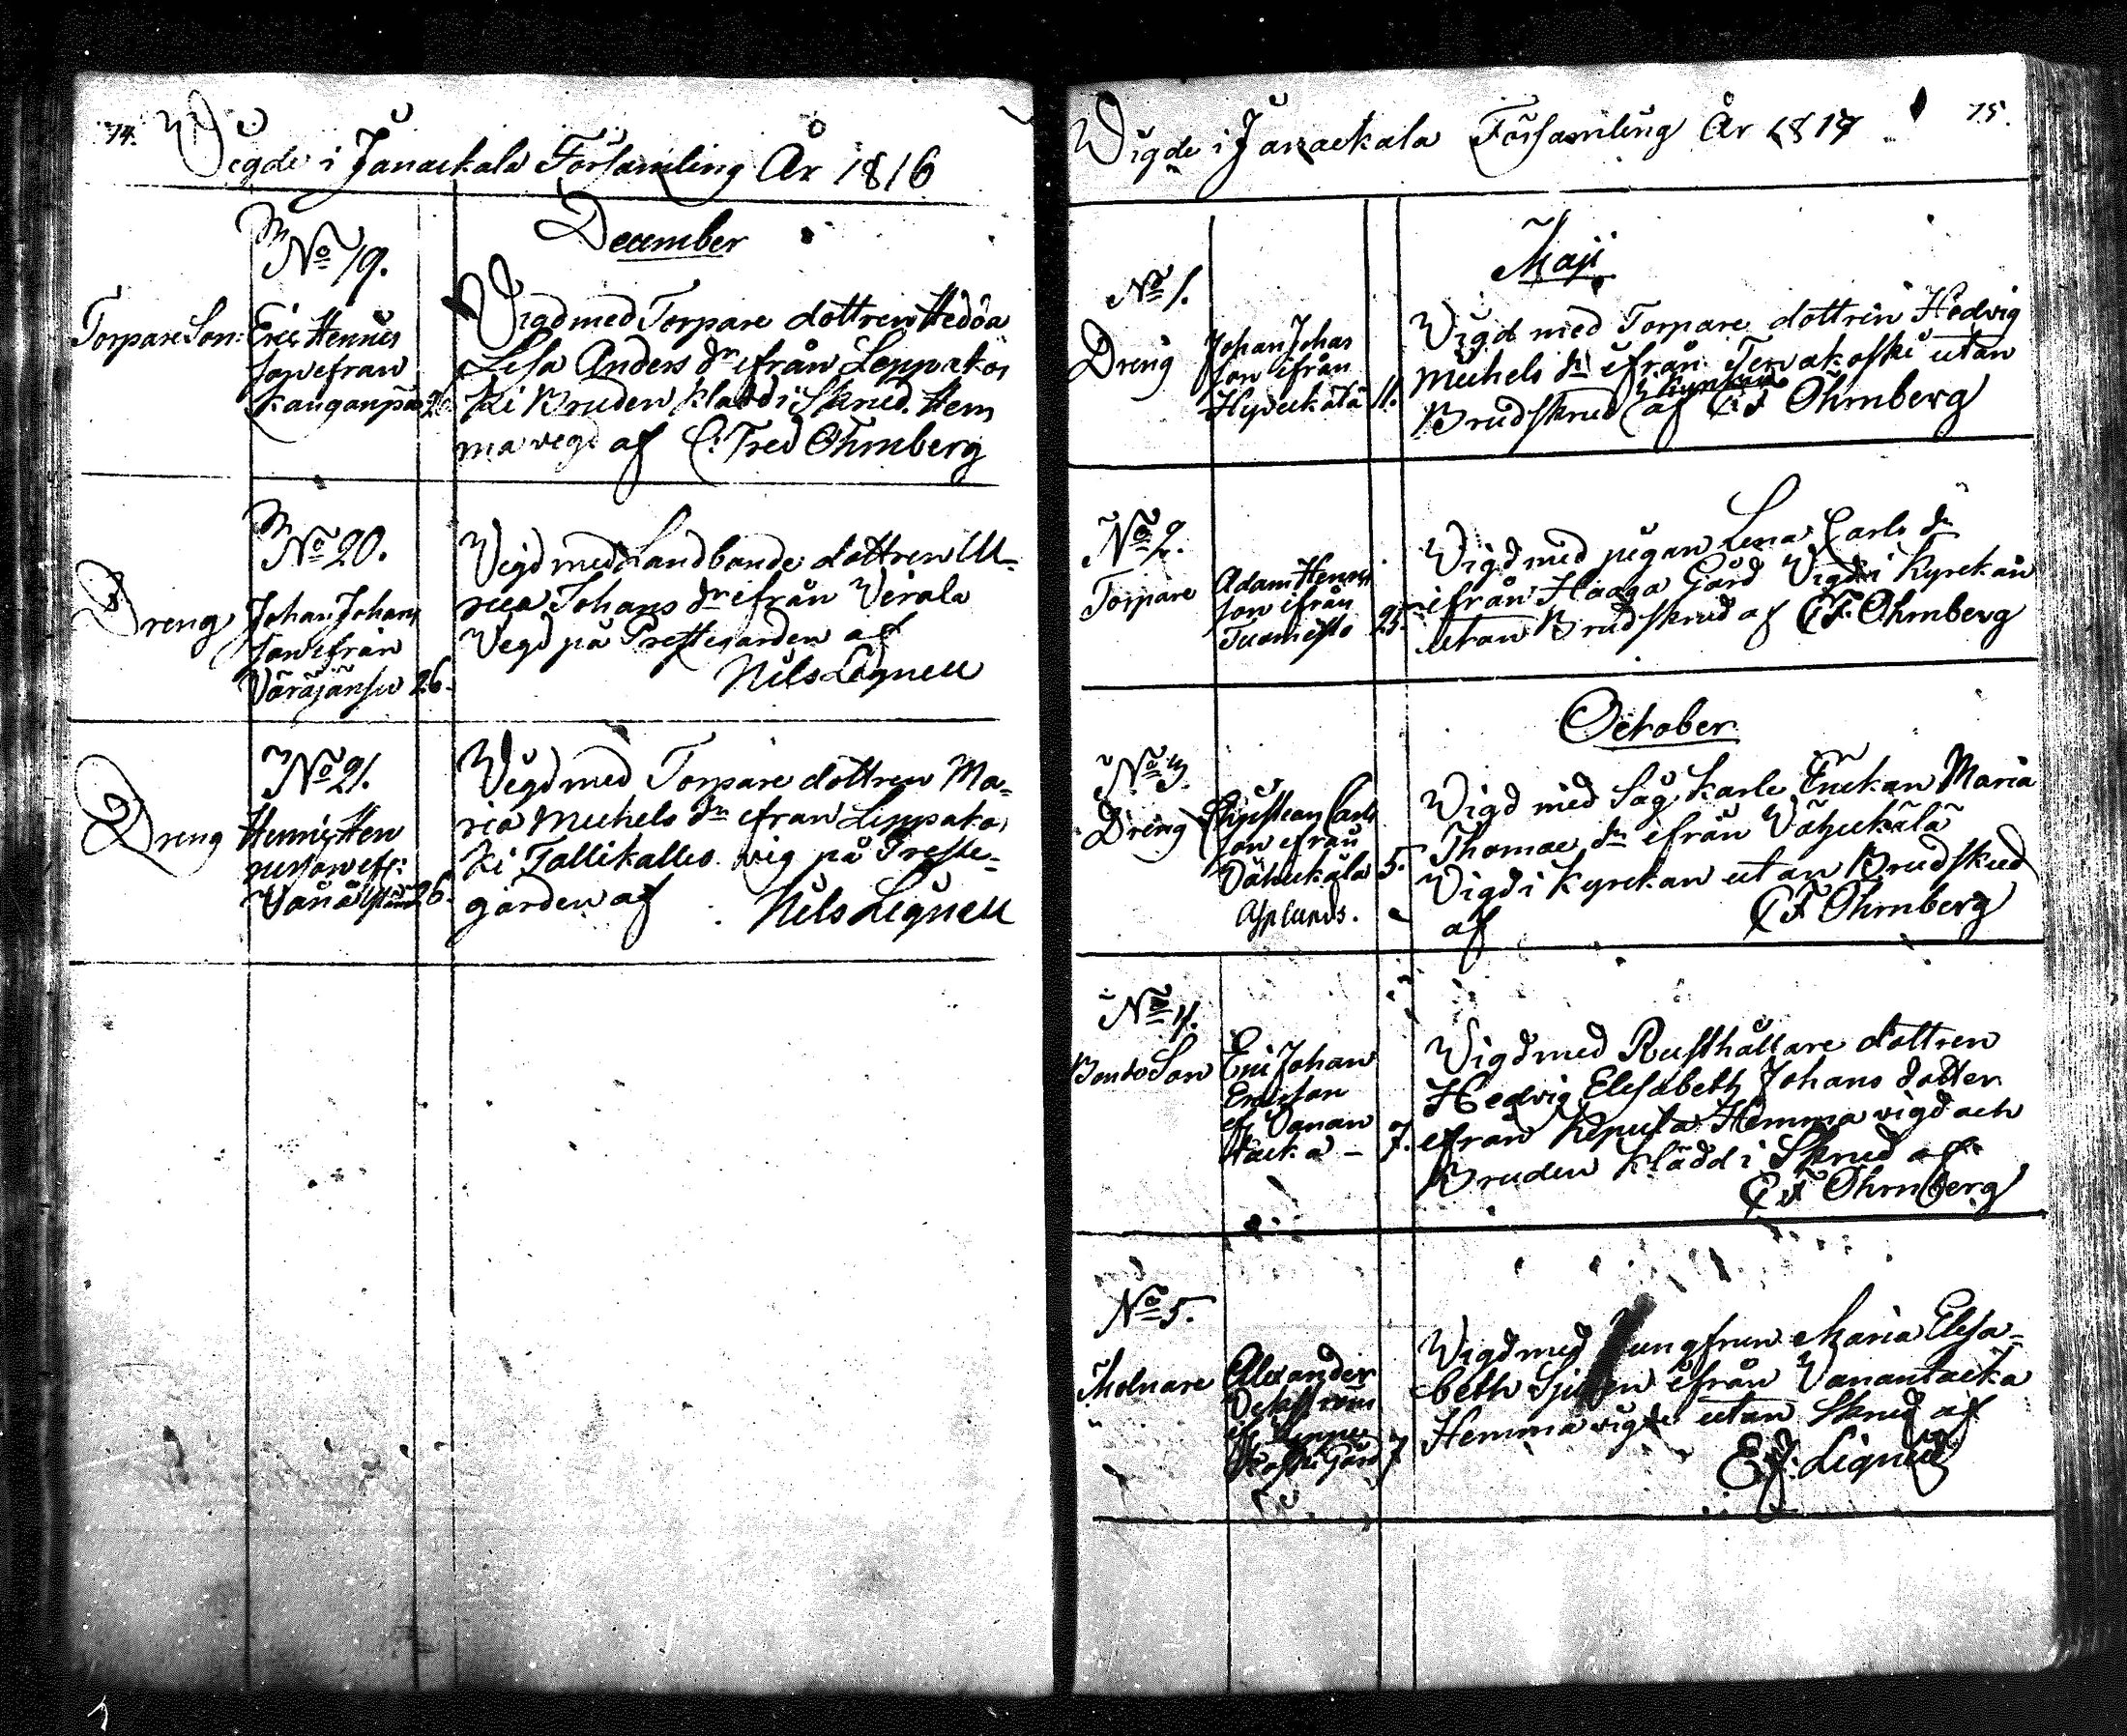 74.
Vigde i Janackala Församling År 1816
December
No 19.
Torpare Son
Eric Henrics
son ifrån
Kauganpää 26.
Vigd med Torpare dottren Hedda
Lisa Anders dr ifrån Leppäkos
ki Bruden Klädd i Skrud. Hem
ma vigd af C. Fred Öhrnberg
No 20.
Dreng
Johan Johans
son ifrån
26.
Vigd med Landbonde dottren Ul-
rica Johans dr ifrån Virala
Vigd på Prestegården af
Nils Lignell
No 21.
Dreng
Henric Hen
ricsson ifr:
26.
Vigd med Torpare dottren Ma-
ria Michels dr ifrån Leppäkos
ki Tallikallio. Vig på Preste-
gården af
Nils Lignell
75.
Wigde i Janackala Församling År 1817
Maji
No 1.
Dreng
Johan Johans
son ifrån
Hyvickälä 11.
Wigd med Torpare dottrin Hedvig
Michels dr ifrån Tervakoski utan
i Kyrkan
Brudskrud af C F Öhrnberg
No 2.
Torpare
Adam Henrics
son ifrån
Tuomisto 25.
Wigd med pigan Lena Carls dr
ifrån Haaga Gård Vigd i Kyrckan
utan Brudskrud af C F. Öhrnberg
October
No 3.
Dreng
Christian Carls
son ifrån
Vähickälä 5.
Asplunds.
Wigd med Såg Karls Enckan Maria
Thomae dr ifrån Vähickälä
Vigd i Kyrckan utan Brudskrud
af C F Öhrnberg
No 4.
Bonde Son
Eric Johan
Ericsson
if Vanan
tacka - 7.
Wigd med Rusthållare dottren
Hedvig Elisabeth Johans dotter
ifrån Kernala Hemma vigd och
Bruden Klädd i Skrud af
C F Öhrnberg
No 5.
Molnare
Alexander
if
Koski Gård 7
Wigd med Jungfrun Maria Elisa-
beth ifrån Vanantacka
Hemma vigde utan Skrud af
E J. Lignell